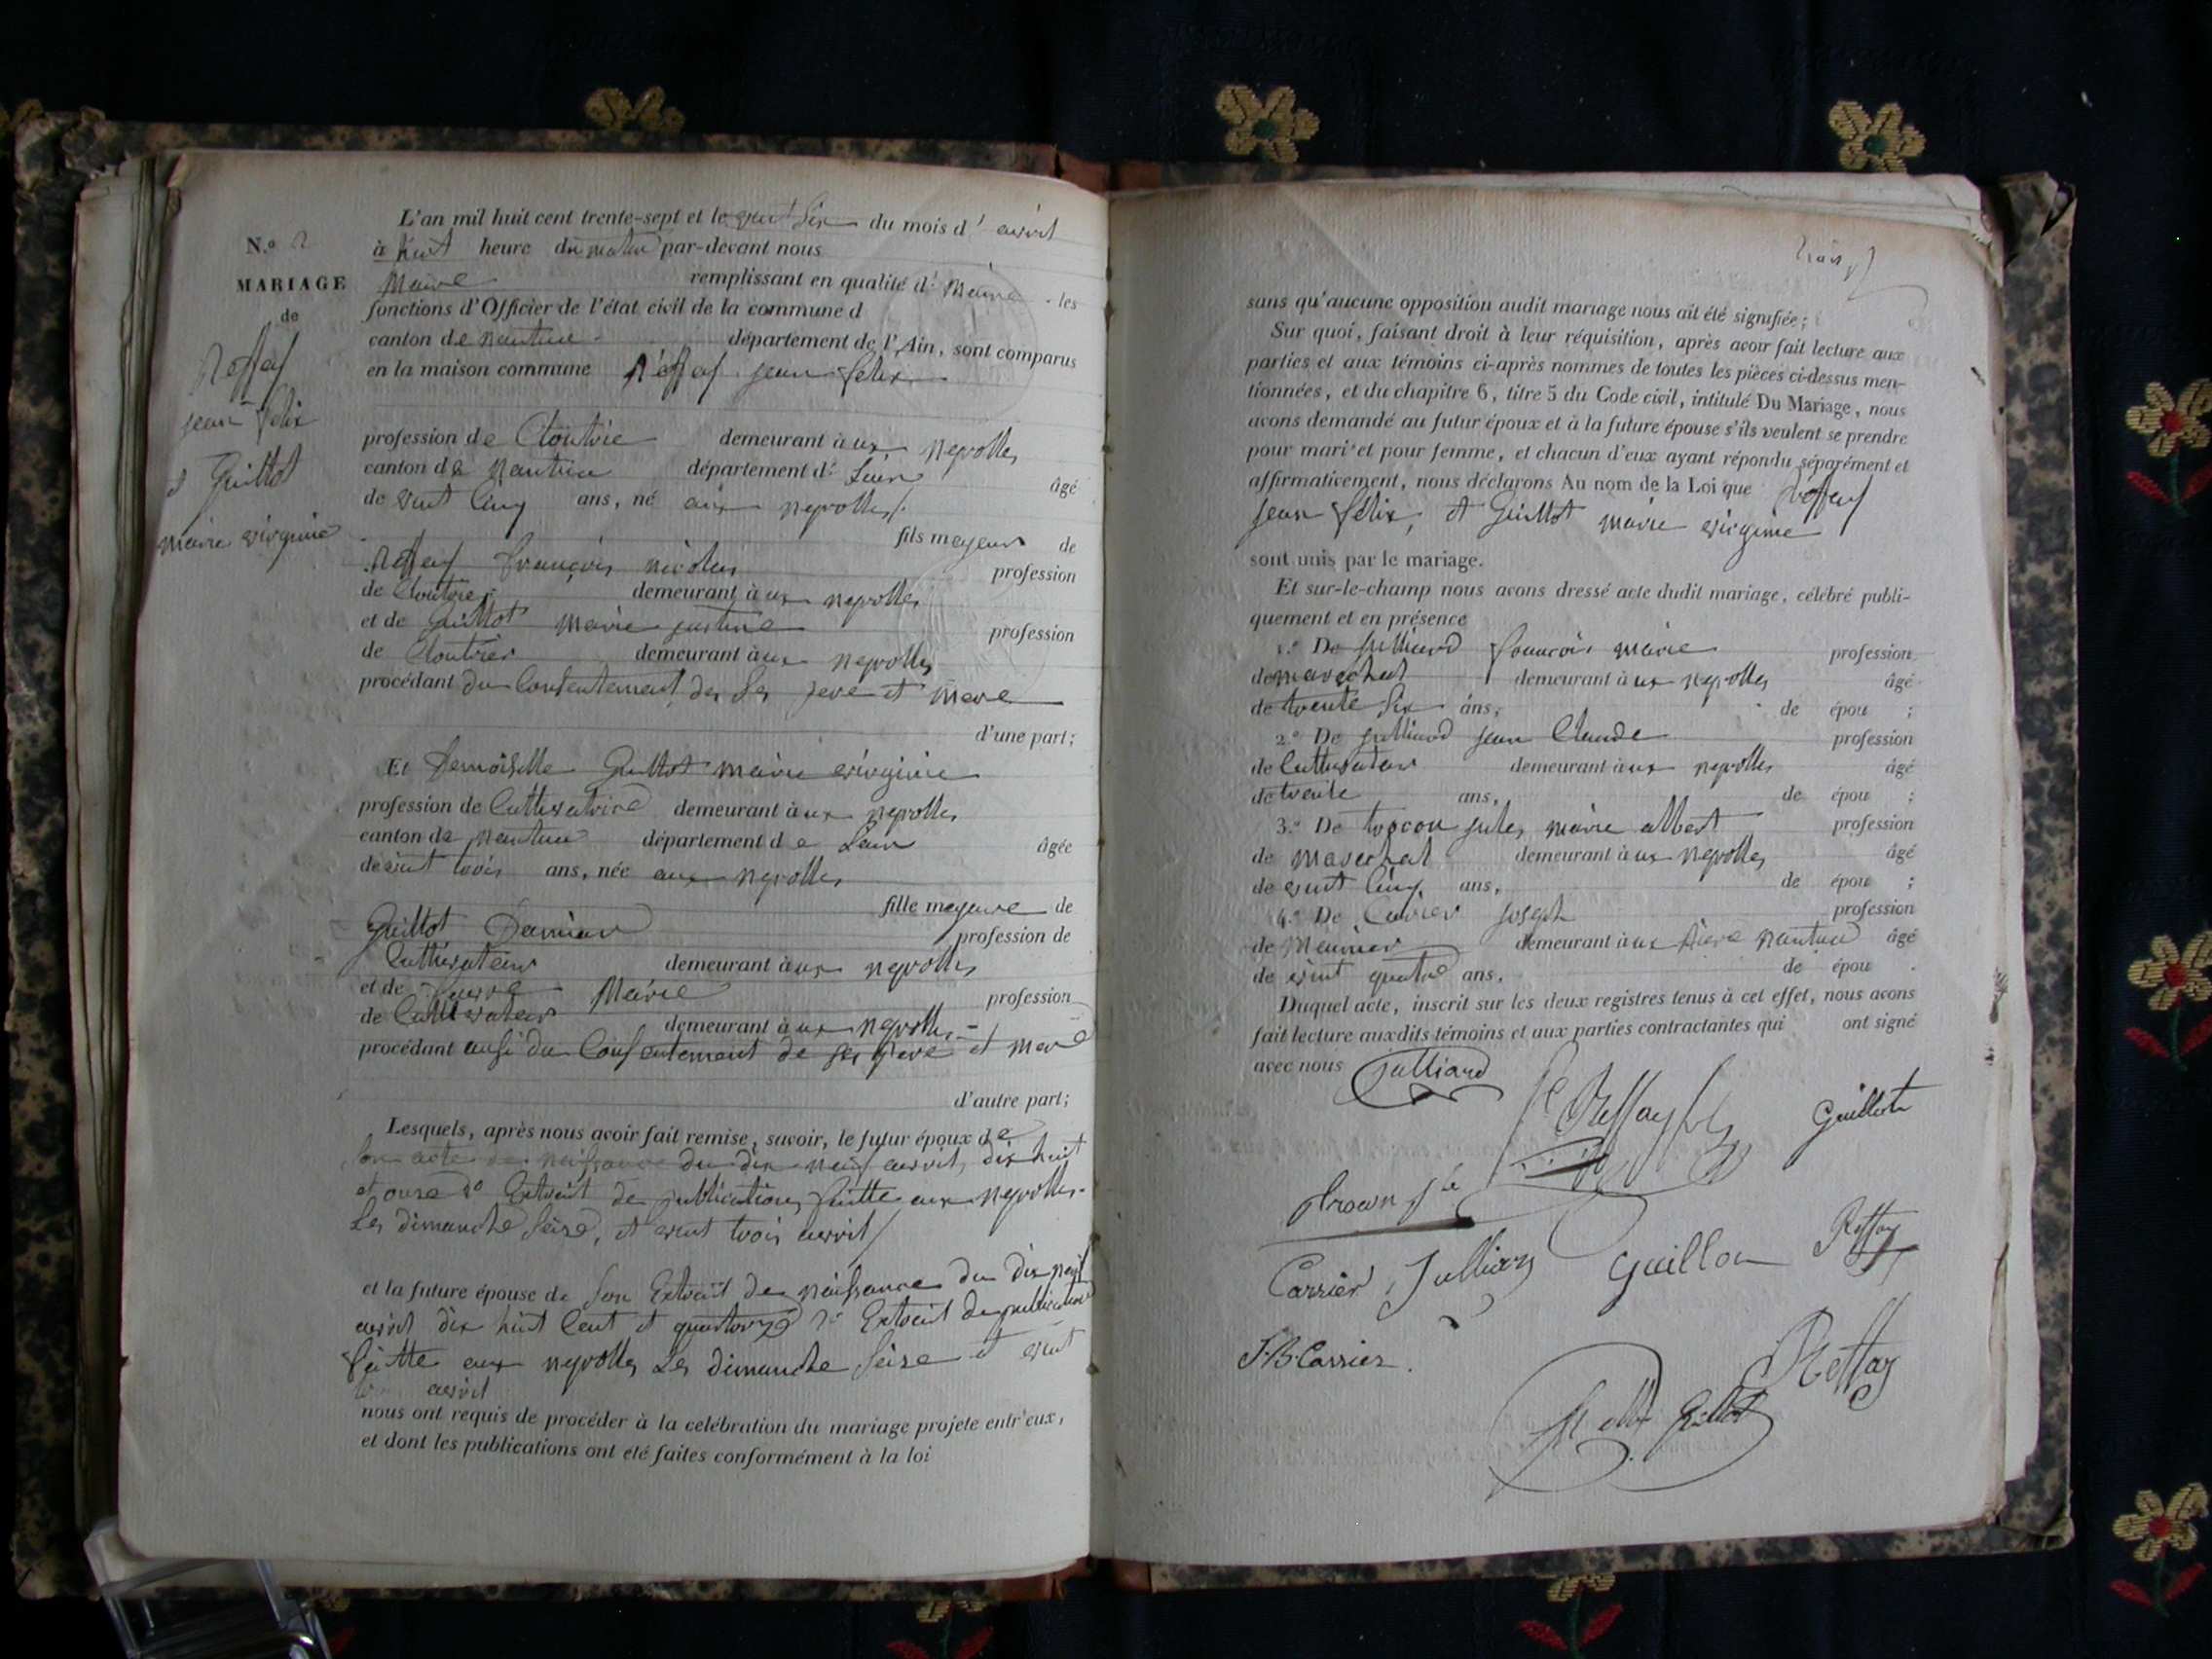 L'an mil huit cent trente-sept et le vint six du mois d' avril
N.º 2
à huit heure du matin par-devant nous
MARIAGE
Maire remplissant en qualité d' Maire les
de
fonctions d'Officier de l'état civil de la commune d
canton de nantua département de l'Ain, sont comparus
en la maison commune Reffay jean felix
Reffay
jean felix
et Guillot
marie virginie
profession de Cloutrie demeurant à ux neyrolles
canton de nantua département de Lain âgé
de vint cinq ans, né aux neyrolles
fils mayeur de
Reffay françois nicolas profession
de Cloutrier demeurant à ux neyrolles
et de Guillot marie justine profession
de Cloutrier demeurant à ux neyrolles
procédant du Consentement des ses pere et mere
d'une part;
Et Demoiselle Guillot marie virginie
profession de Cultivatrice demeurant à ux neyrolles
canton de nantua département d e Lain âgée
de vint trois ans, née aux neyrolles
fille mayeure de
Guillot Damien profession de
Cultivateur demeurant à ux neyrolles
et de Marie profession
de Cultivateur demeurant à ux neyrolles
procédant ausi du Consentement de ses pere et mere
d'autre part;
Lesquels, après nous avoir fait remise, savoir, le futur époux de
son acte de naissance du dix neuf avril dix huit
et onze 2º Extrait de publications faitte aux neyrolles
Les dimanche seise, et vint trois avril
et la future épouse de son Extrait de naissance du dix neuf
avril dix huit Cent et quatorze 2º Extrait de publications
faitte aux neyrolles Les dimanche seise et vint
avril
nous ont requis de procéder à la celébration du mariage projete entr'eux,
et dont les publications ont été faites conformément à la loi
sans qu'aucune opposition audit mariage nous ait été signifiée;
Sur quoi, faisant droit à leur réquisition, après avoir fait lecture aux
parties et aux témoins ci-après nommes de toutes les pièces ci-dessus men-
tionnées, et du chapitre 6, titre 5 du Code civil, intitulé Du Mariage, nous
avons demandé au futur époux et à la future épouse s'ils veulent se prendre
pour mari et pour femme, et chacun d'eux ayant répondu séparément et
affirmativement, nous déclarons Au nom de la Loi que Reffay
jean félix, et Guillot marie virginie
sont unis par le mariage.
Et sur-le-champ nous avons dressé acte dudit mariage, célébré publi-
quement et en présence
1.º De julliard françois marie profession
de marechal demeurant à ux neyrolles âgé
de trente six ans, de épou ;
2.º De julliard jean Claude profession
de Cultivateur demeurant à ux neyrolles âgé
de trente ans, de épou ;
3.º De jules marie albert profession
de marechal demeurant à ux neyrolles âgé
de vint cinq ans, de épou ;
4.º De Carrier joseph profession
de Meunier demeurant à nantua âgé
de vint quatre ans. de épou .
Duquel acte, inscrit sur les deux registres tenus à cet effet, nous avons
fait lecture auxdits témoins et aux parties contractantes qui ont signé
avec nous Julliard
Reffay Guillot
Carrier Julliard Guillot Reffay
J.B. Carrier Reffay
Guillot